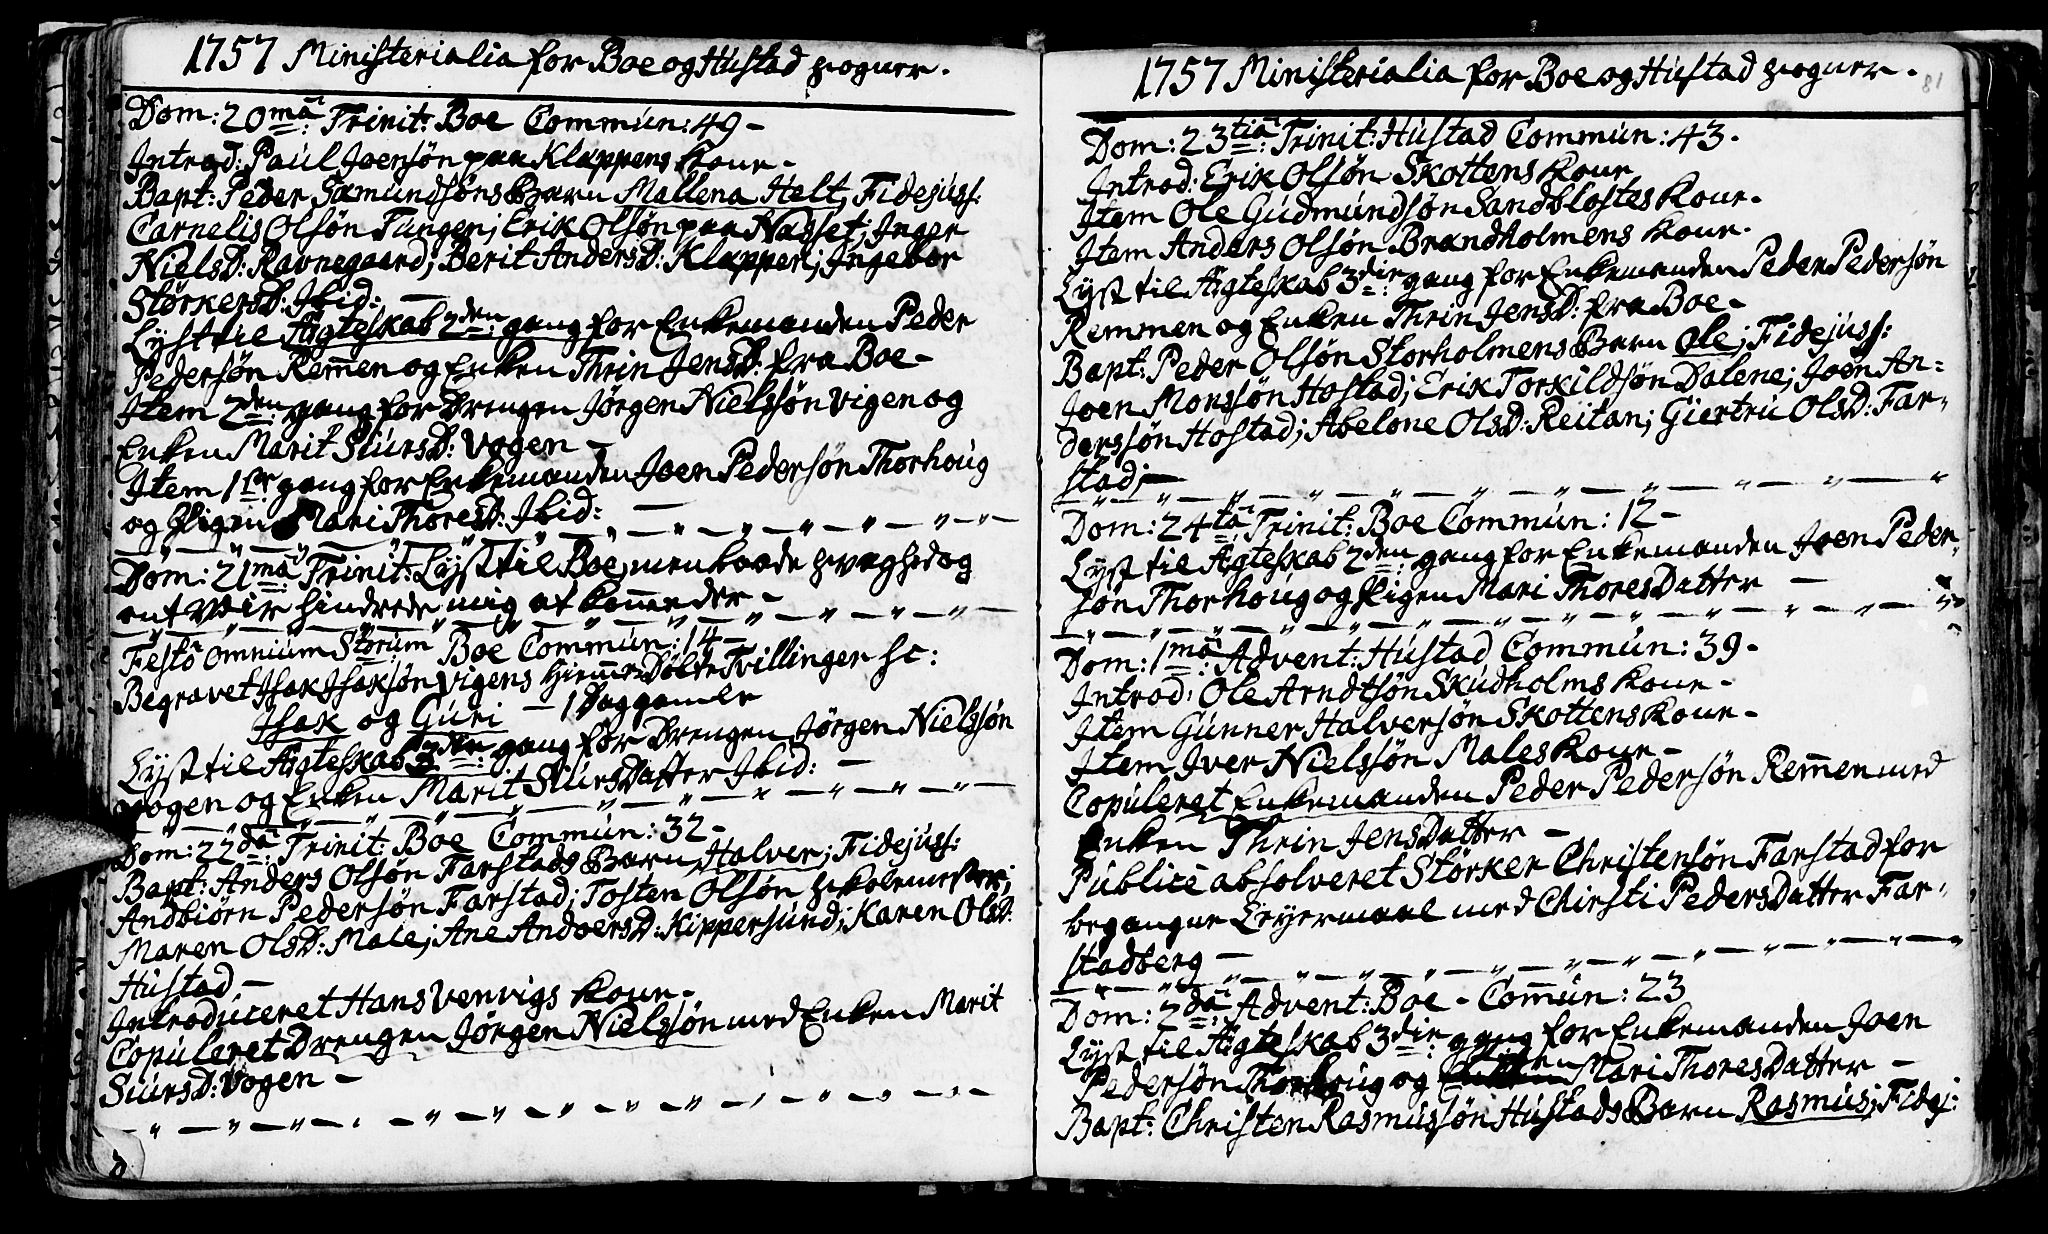 1757 Ministerialia for Boe og Hustad Sogner.
Dom: 20mâ: Trinit: Boe Commun: 49 –
Introd: Paul Joensøn paa Klappens Kone –
Bapt: Peder Samundsøns Barn Mallena Helt, Fidejuss:
Carnelis Olsøn Tungen; Erik Olsøn paa Nasset; Inger
NielsD: Ravnegaard; Berit AndersD: Klappen; Ingebor
StørkersD: Ibid: –
Lyst til Ægteskab 2den: gang for Enkemanden Peder
Pedersøn Rem̄en og Enken Thrin JensD: fra Boe –
Item 2den: gang for Drengen Jørgen Nielssøn Vigen og
Enken Marit SiursD: Vogen –
Item 1ste gang for Enkemanden Joen Pedersøn Thorhoug
og Pigen Mari ThoresD: Ibid: –
Dom: 21mâ: Trinit: Lyst til Boe, men baade Svaghed og
ont Veir hindrede mig at kom̄e der –
Festô omnium Storum Boe Commun: 14 –
Begravet Isak Isaksøn Vigens Hiem̄e Døbte Tvillinger sc:
Isak og Guri – 1 Dag gamle
Lyst til Ægteskab 3die: gang for Drengen Jørgen Nielssøn
Vogen og Enken Marit SiursDatter Ibid: –
Dom: 22dâ: Trinit: Boe Commun: 32 –
Bapt: Anders Olsøn Farstads Barn Halver; Fidejuss:
Andbiørn Pedersøn Farstad; Tosten Olsøn Skolemester;
Maren OlsD: Male; Ane AndersD: Kippersund; Karen OlsD:
Hustad –
Introduceret Hans Venvigs Kone –
Copuleret Drengen Jørgen Nielssøn med Enken Marit
SiursD: Vogen –
1757 Ministerialia for Boe og Hustad Sogner.
81
Dom: 23tiâ: Trinit: Hustad Commun: 43.
Introd: Erik Olsøn Skottens Kone
Item Ole Gudmundsøn Sandblostes Kone.
Item Anders Olsøn Brandholmens Kone.
Lyst til Ægteskab 3die: gang for Enkemanden Peder Pedersøn
Remmen og Enken Thrin JensD: fra Boe –
Bapt: Peder Olsøn Storholmens Barn Ole; Fidejuss:
Joen Monssøn Hostad; Erik Torkildsøn Dalene; Joen An=
derssøn Hostad; Abelone OlsD: Reitan; Giertru OlsD: Far=
stad; –
Dom: 24tâ: Trinit: Boe Commun: 12 –
Lyst til Ægteskab 2den: gang for Enkemanden Joen Peder=
søn Thorhoug og Pigen Mari ThoresDatter –
Dom: 1mâ: Advent: Hustad Commun: 39.
Introd: Ole Arndtsøn Skudholms Kone –
Item Gunner Halversøn Skottens Kone –
Item Iver Nielssøn Males Kone –
Copuleret Enkemanden Peder Pedersøn Rem̄en med
Enken Thrin JensDatter –
Publice absolveret Størker Christensøn Farstad for
begangne Leyermaal med Chirsti PedersDatter Far=
stadberg –
Dom: 2dâ: Advent: Boe – Com̄un: 23
Lyst til Ægteskab 3die: gang for Enkemanden Joen
Pedersøn Thorhoug og Pigen Mari ThoresDatter –
Bapt: Christen Rasmussøn Hustads Barn Rasmus; Fidej: